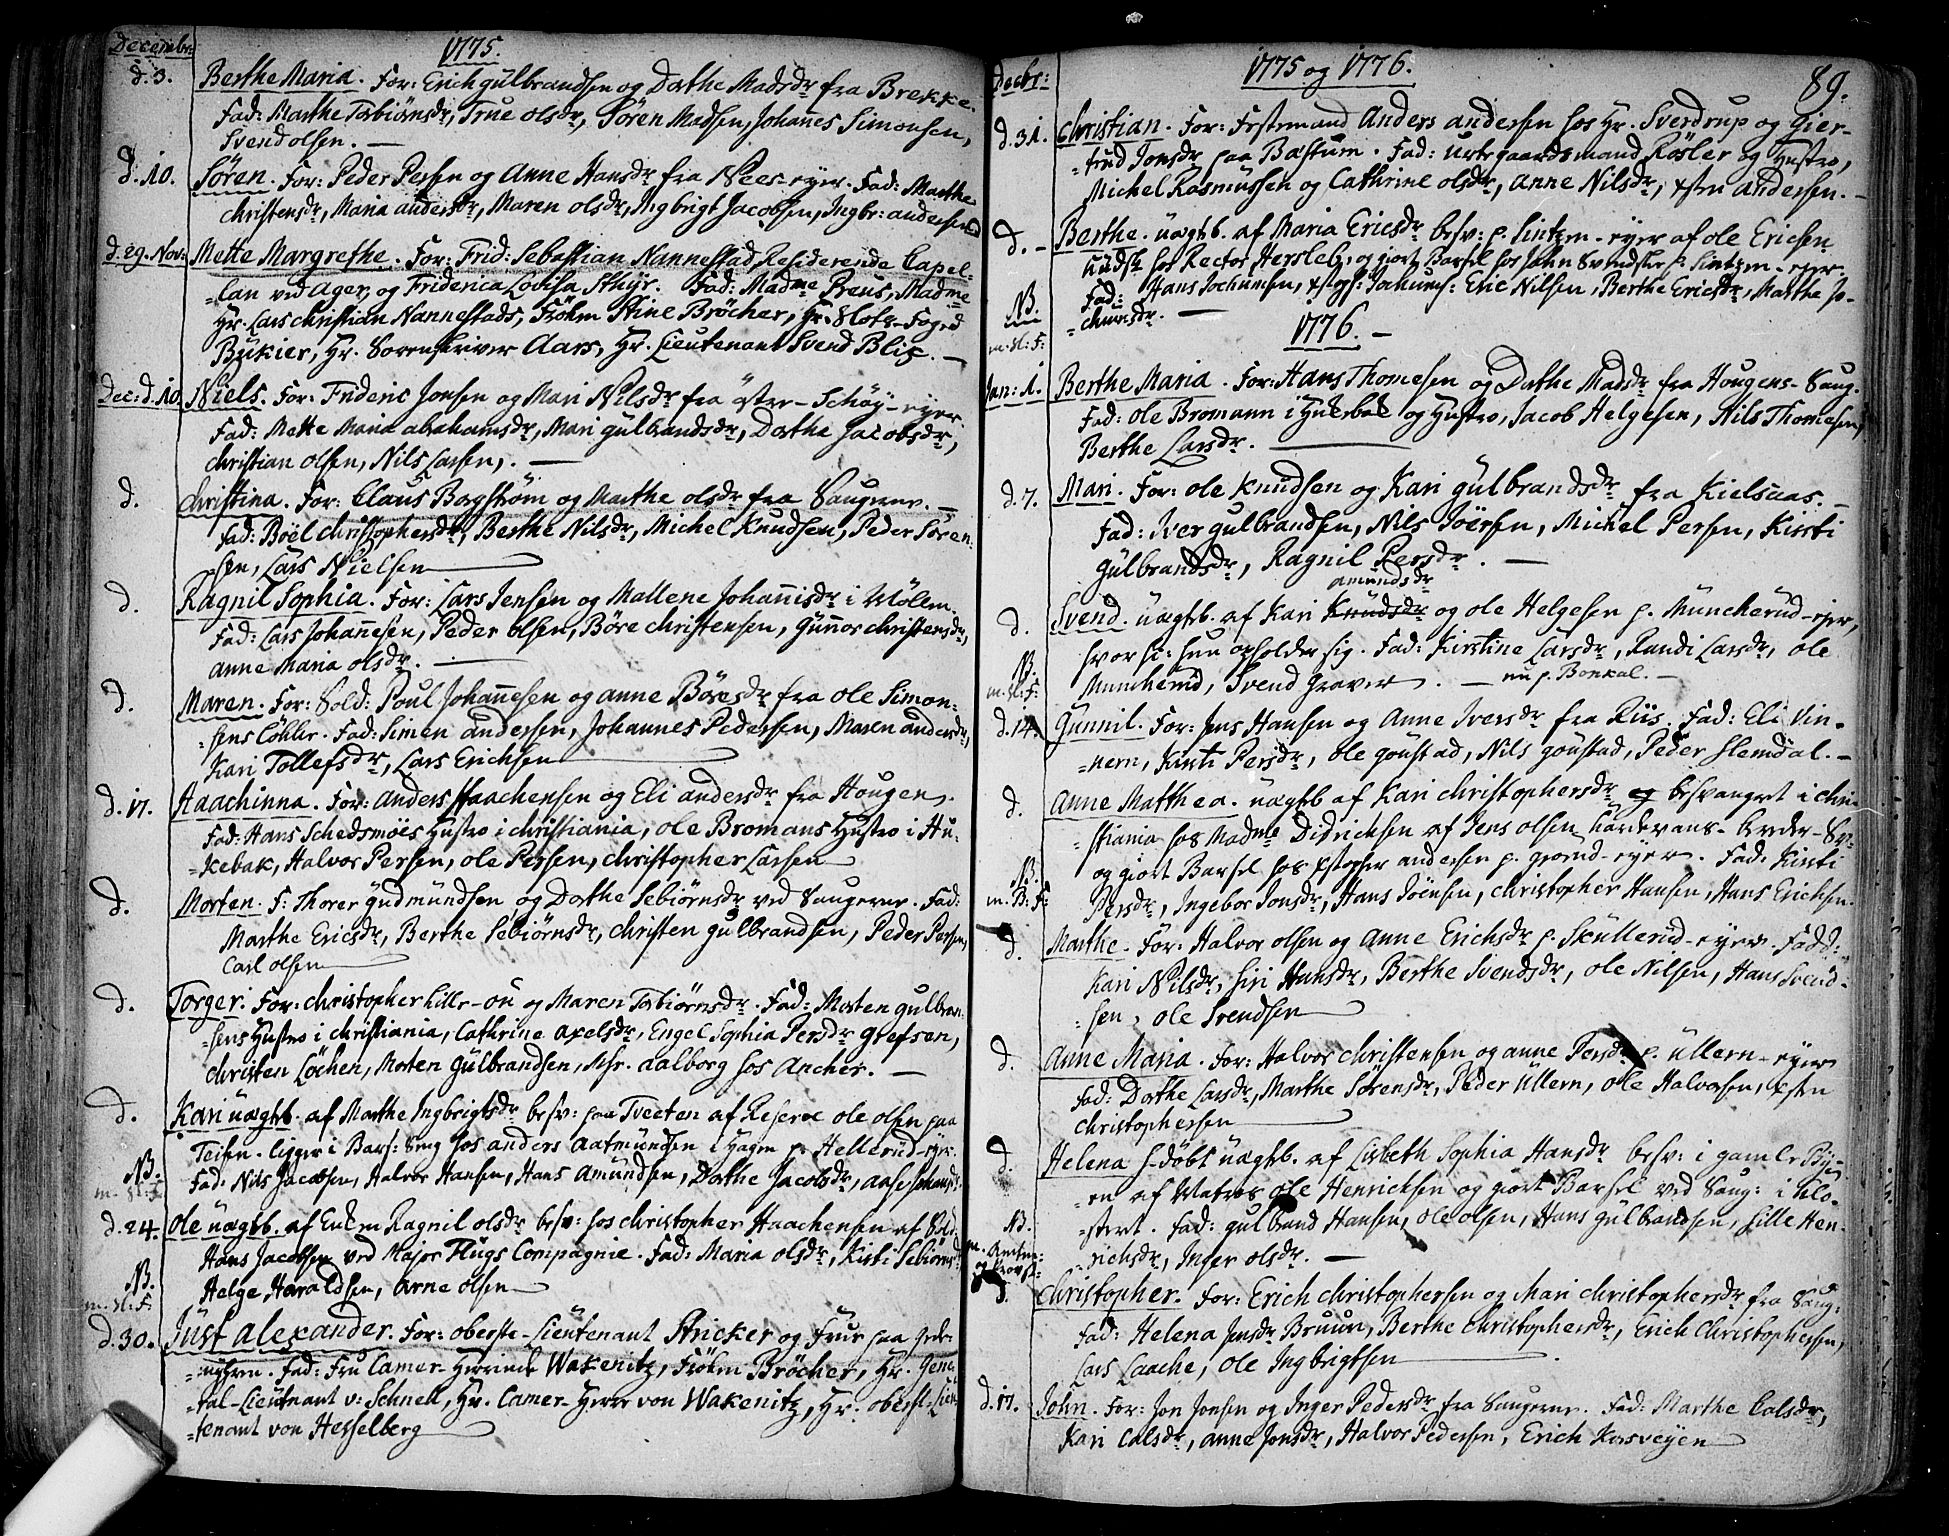 Decembr:
1775.
d. 3. Berthe Maria. For: Erich Gülbrandsen og Dorthe Madsdr fra Brekke.
Fad: Marthe Torbiörnsdr, True olsdr, Sören Madsen, Johannes Simonsen,
Svend olsen. —
d. 10. Sören. For: Peder Persen og Anne Hansdr fra Nees-eyer. Fad: Marthe
christensdr, Maria andersdr, Maren olsdr, Ingbrigt Jacobsen, Ingbr: andersen
d. 29. Nov: Mette Margrethe. For: Frid: Sebastian Nannestad Residerende Capel-
-lan ved Ager, og Friderica Lovisa Sthyr. Fad: Madme Preus, Madme
Hr. Lars christian Nannestads, Frökn Stine Bröcher, Hr. Slots-Foged
Bükier, Hr. Sorenskriver Aars, Hr. Lieutenant Svend Blix. —
Dec: d. 10. Niels. For: Frideric Jonsen og Mari Nilsdr fra öster-Schöy-eyer
Fad: Mette Maria abrahamsdr, Mari gülbrandsdr, Dorthe Jacobsdr,
christian olsen, Nils Larsen, . —
d. Christina. For: Claus Bagström og Marthe olsdr fra Saugerne. —
Fad: Böel christophersdr, Berthe Nilsdr, Michel Knudsen, Peder Sören-
-sen, Lars Nielsen
d. Ragnil Sophia. For: Lars Jensen og Mallene Johannisdr i Möllen.
Fad: Lars Johannesen, Peder olsen, Böre christensen, Gunnor christensdr,
anne Maria olsdr. —
d. Maren. For: Sold: Poul Johannesen og anne Böresdr fra ole Simon-
-sens Lökke. Fad: Simen andersen, Johannes Pedersen, Maren andersdr,
Kari Tollefsdr, Lars Erichsen
d. 17. Haachinna. For: anders Haachensen og Eli andersdr fra Hougen.
Fad: Hans Schedsmöes Hustro i christiania, ole Bromans Hustro i Hu-
-kebak, Halvor Persen, ole Persen, christopher Larsen
d. Morten. F: Thorer Gudmundsen og Dorthe Sebiörnsdr ved Saugerne. Fad:
Marthe Ericsdr, Berthe Sebiörnsdr, christen gülbrandsen, Peder Persen,
Carl olsen
d. Torger. For: christopher Lille-ou og Maren Torbiörnsdr. Fad: Morten gulbran-
-sens Hustro i christiania, Cathrine axelsdr, Engel Sophia Persdr Grefsen,
christen Löchen, Morten Gülbrandsen, Msr. Aalborg hos Ancher. —
d. Kari uægtb. af Marthe Ingbrigtsdr besv: paa Tveeten af Reserve ole olsen paa
Teisen. ligger i Bars: Seng hos anders Aatmundsen i Hagen p. Hellerud-eyer.
NB. Fad: Nils Jacobsen, Halvor Hansen, Hans amundsen, Dorthe Jacobsdr,
m. Sl: F.
d. 24. ole uægtb. af Enken Ragnil olsdr besv: hos christopher Haachensen af Sold:
Hans Jacobsen ved Major Flugs Compagnie. Fad: Maria olsdr, Kisti Sebiörnsdr
NB. Helge Haraldsen, Arne olsen
m. Sl: F.
d. 30. Just Alexander. For: oberste-Lieutenant Stricker og Frue paa
Fad: Fru Camer-Herrinde Wakenitz, Frökn Bröcher, Hr. Gene-
-ral-Lieutnant v: Schnell, Hr. Camer-Herre von Wakenitz, Hr: oberst-Lieu-
-tenant von Hesselberg
Decbr:
1775 og 1776.
89.
d. 31. Christian. For: Festemand Anders andersen hos Hr. Sverdrup og Gier-
-trud Jonsdr paa Bæstum. Fad: urtegaardsmand Rösler og Hustro,
Michel Rasmussen og Cathrine olsdr, Anne Nilsdr, xsten andersen. —
d. — Berthe. uægtb. af Maria Ericsdr besv: p. Sintzen-eyer af ole Ericsen
Kudsk hos Rector Hersleb, og giort Barsel hos John p. Sintzen-eyer.
NB. Fad: Hans Jochumsen, xstoph: Jochums: Eric Nilsen, Berthe Ericsdr, Marthe Jo-
-chumsdr. —
m. Sl: F:
1776. —
Jan: 1. Berthe Maria. For: Hans Thomesen og Dorthe Madsdr fra Hougens-Saug.
Fad: ole Bromann i Hukebak og Hustro, Jacob Helgesen, Nils Thomesen,
Berthe Larsdr. —
d. 7. Mari. For: ole Knudsen og Kari Gülbrandsdr fra Kielsaas. —
Fad: Iver gulbrandsen, Nils Joersen, Michel Persen, Kirsti
Gülbrandsdr, Ragnil Persdr. —
amundsdr
d. Svend. uægtb. af Kari Knudsdr og ole Helgesen p. Muncherud-ejer,
hvor hi: hun opholder sig. Fad: Kirstine Larsdr, Randi Larsdr, ole
NB. Muncherud, Svend Graver. — nu p. Bonkal. —
m. Sl: F:
d. 14. Gunnil. For: Jens Hansen og Anne Iversdr fra Riis. Fad: Eli Vin-
-nern, Kirsti Persdr, ole goustad, Nils goustad, Peder Slemdal. —
d. Anne Matthea. uægtb af Kari christophersdr og besvangret i chri-
-stiania hos Madme Didricksen af Jens olsen
og giort Barsel hos xstopher andersen p. grönd-eyer. Fad: Kirsti
NB. Persdr, Ingebor Jonsdr, Hans Joensen, christopher Hansen, Hans Erichsen.
m. B: F:
d. Marthe. For: Halvor olsen og Anne Erichsdr p. Skullerud-eyer. Fadd:
Kari Nilsdr, Siri Hansdr, Berthe Svendsdr, ole Nilsen, Hans Svend-
-sen, ole Svendsen
d. Anne Maria. For: Halvor christensen og anne Persdr p. üllern-eyer
Fad: Dorthe Larsdr, Marthe Sörensdr, Peder Ullern, ole Halvorsen, xsten
christophersen
d. Helena h-döbt uægtb. af Lisbeth Sophia Hansdr besv: i gamle By-
-en af Matros ole Henricksen og giort Barsel ved Saug: i Klo-
NB. -steret. Fad: gulbrand Hansen, ole olsen, Hans gulbrandsen, Sille Hen-
-richsdr, Inger olsdr. —
d. Christopher. For: Erich christophersen og Mari christophersdr fra Saug:
Fad: Helena Jensdr Bruun, Berthe Christophersdr, Erich Christophersen,
Lars Laache, ole Ingbrigtsen
d. 17. John. For: Jon Jonsen og Inger Pedersdr fra Saugerne. Fad: Marthe Calsdr,
Kari Calsdr, anne Jonsdr, Halvor Pedersen, Erich Korsveyen